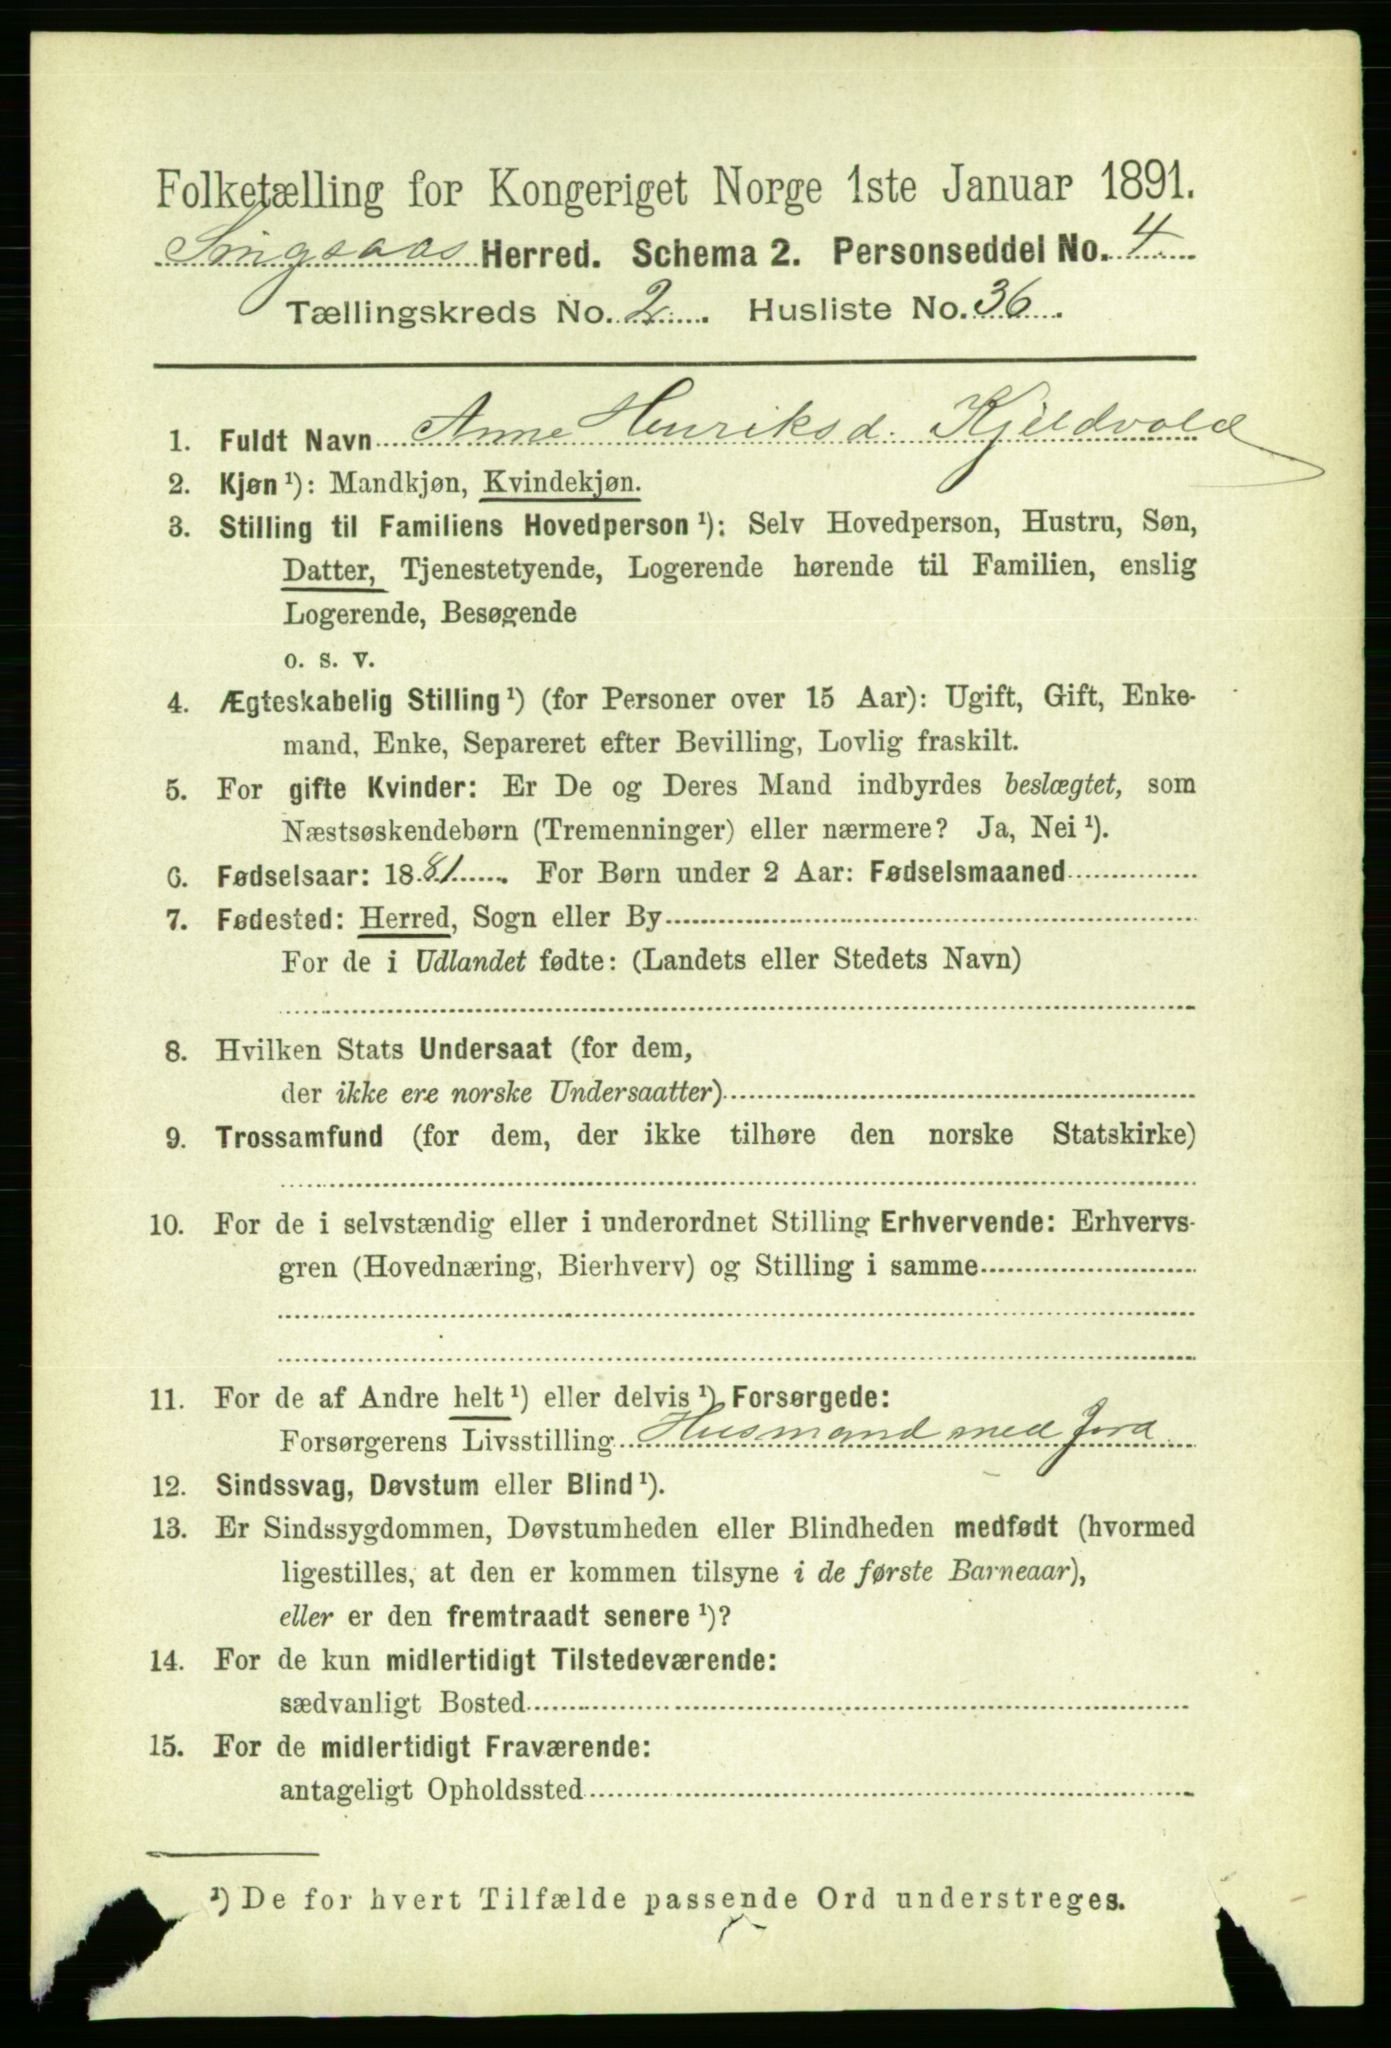 Folketælling for Kongeriget Norge 1ste Januar 1891.
Singsaas Herred. Schema 2. Personseddel No. 4
Tællingskreds No. 2. Husliste No. 36.
1. Fuldt Navn Anne Henriksd. Kjeldvold
2. Kjøn ¹): Mandkjøn, Kvindekjøn.
3. Stilling til Familiens Hovedperson ¹): Selv Hovedperson, Hustru, Søn,
Datter, Tjenestetyende, Logerende hørende til Familien, enslig
Logerende, Besøgende
o. s. v.
4. Ægteskabelig Stilling ¹) (for Personer over 15 Aar): Ugift, Gift, Enke-
mand, Enke, Separeret efter Bevilling, Lovlig fraskilt.
5. For gifte Kvinder: Er De og Deres Mand indbyrdes beslægtet, som
Næstsøskendebørn (Tremenninger) eller nærmere? Ja, Nei ¹).
6. Fødselsaar: 1881. For Børn under 2 Aar: Fødselsmaaned
7. Fødested: Herred, Sogn eller By
For de i Udlandet fødte: (Landets eller Stedets Navn)
8. Hvilken Stats Undersaat (for dem,
der ikke ere norske Undersaatter)
9. Trossamfund (for dem, der ikke tilhøre den norske Statskirke)
10. For de i selvstændig eller i underordnet Stilling Erhvervende: Erhvervs-
gren (Hovednæring, Bierhverv) og Stilling i samme
11. For de af Andre helt ¹) eller delvis ¹) Forsørgede:
Forsørgerens Livsstilling Husmand med Jord
12. Sindssvag, Døvstum eller Blind ¹).
13. Er Sindssygdommen, Døvstumheden eller Blindheden medfødt (hvormed
ligestilles, at den er kommen tilsyne i de første Barneaar),
eller er den fremtraadt senere ¹)?
14. For de kun midlertidigt Tilstedeværende:
sædvanligt Bosted
15. For de midlertidigt Fraværende:
antageligt Opholdssted
¹) De for hvert Tilfælde passende Ord understreges.